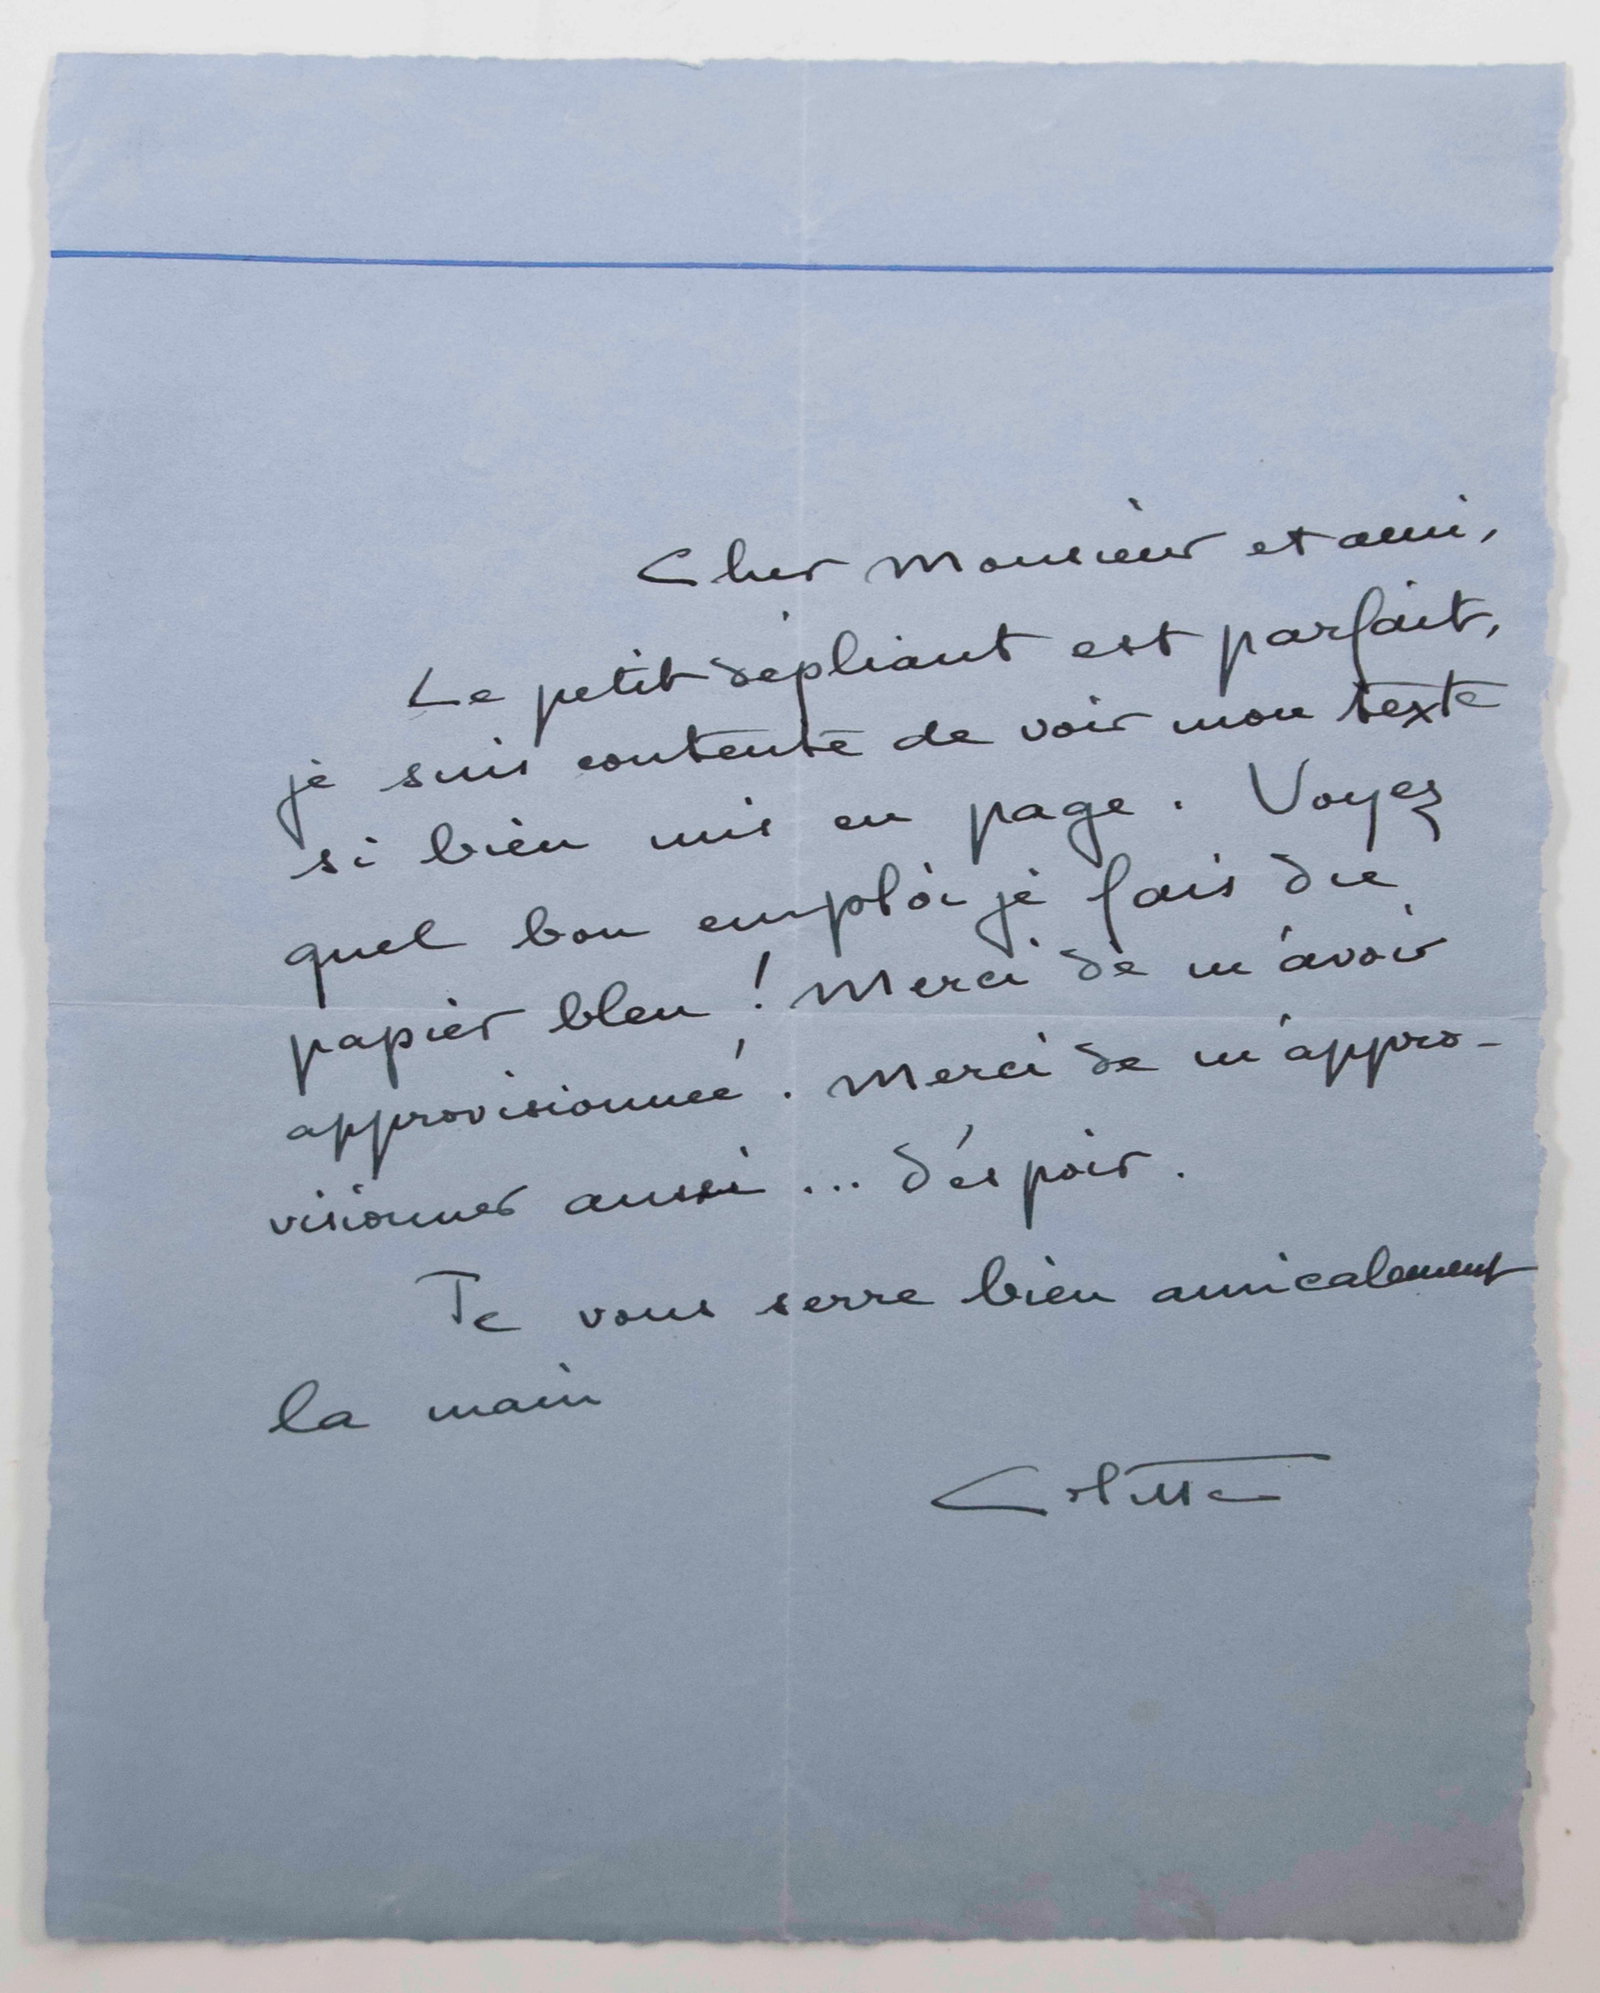 Cher Monsieur et ami,
Le petit dépliant est parfait,
je suis contente de voir mon texte
si bien mis en page. Voyez
quel bon emploi je fais du
papier bleu ! Merci de m'avoir
approvisionnée. Merci de m'appro-
visionner aussi ... d'espoir.
Je vous serre bien amicalement
la main
Colette